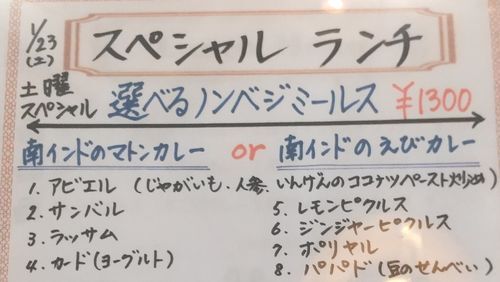 1/23
(土)
スペシャル ランチ
土曜
スペシャル
選べるノンベジミールス ¥1300
南インドのマトンカレー or 南インドのえびカレー
1. アビエル (じゃがいも、人参、いんげんのココナツペースト炒め)
2. サンバル
3. ラッサム
4. カード(ヨーグルト)
5. レモンピクルス
6. ジンジャーピクルス
7. ポリヤル
8. パパド(豆のせんべい)